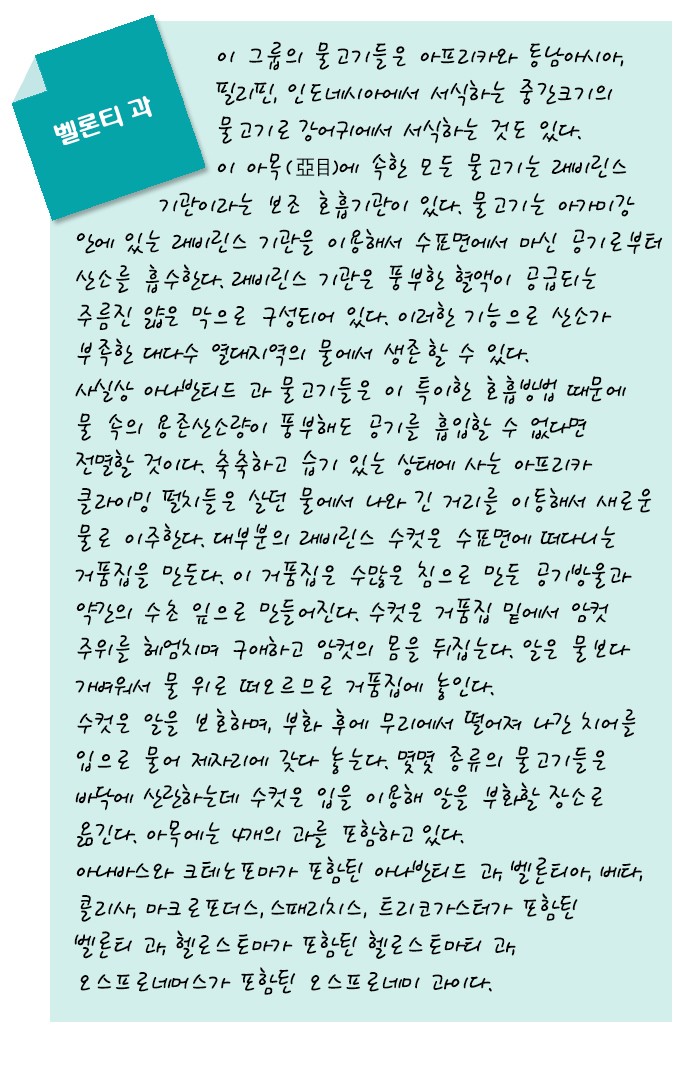 벨론티 과
이 그룹의 물고기들은 아프리카와 동남아시아,
필리핀, 인도네시아에서 서식하는 중간크기의
물고기로 강어귀에서 서식하는 것도 있다.
이 아목(亞目)에 속한 모든 물고기는 래비린스
기관이라는 보조 호흡기관이 있다. 물고기는 아가미강
안에 있는 래비린스 기관을 이용해서 수표면에서 마신 공기로부터
산소를 흡수한다. 래비린스 기관은 풍부한 혈액이 공급되는
주름진 얇은 막으로 구성되어 있다. 이러한 기능으로 산소가
부족한 대다수 열대지역의 물에서 생존할 수 있다.
사실상 아나반티드 과 물고기들은 이 특이한 호흡방법 때문에
물 속의 용존산소량이 풍부해도 공기를 흡입할 수 없다면
전멸할 것이다. 축축하고 습기 있는 상태에 사는 아프리카
클라이밍 펄치들은 살던 물에서 나와 긴 거리를 이동해서 새로운
물로 이주한다. 대부분의 래비린스 수컷은 수표면에 떠다니는
거품집을 만든다. 이 거품집은 수많은 침으로 만든 공기방울과
약간의 수초 잎으로 만들어진다. 수컷은 거품집 밑에서 암컷
주위를 헤엄치며 구애하고 암컷의 몸을 뒤집는다. 알은 물보다
가벼워서 물 위로 떠오르므로 거품집에 놓인다.
수컷은 알을 보호하며, 부화 후에 무리에서 떨어져 나간 치어를
입으로 물어 제자리에 갖다 놓는다. 몇몇 종류의 물고기들은
바닥에 산란하는데 수컷은 입을 이용해 알을 부화할 장소로
옮긴다. 아목에는 4개의 과를 포함하고 있다.
아나바스와 크테노포마가 포함된 아나반티드 과, 벨론티아, 베타,
콜리사, 마크로포더스, 스패리치스, 트리코가스터가 포함된
벨론티 과, 헬로스토마가 포함된 헬로스토마티 과,
오스프로네머스가 포함된 오스프로네미 과이다.